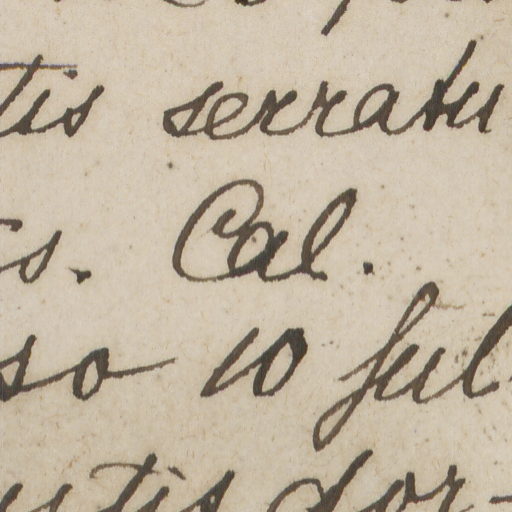 tis serratu
s. Cal.
so 10 sul
ustis dor-